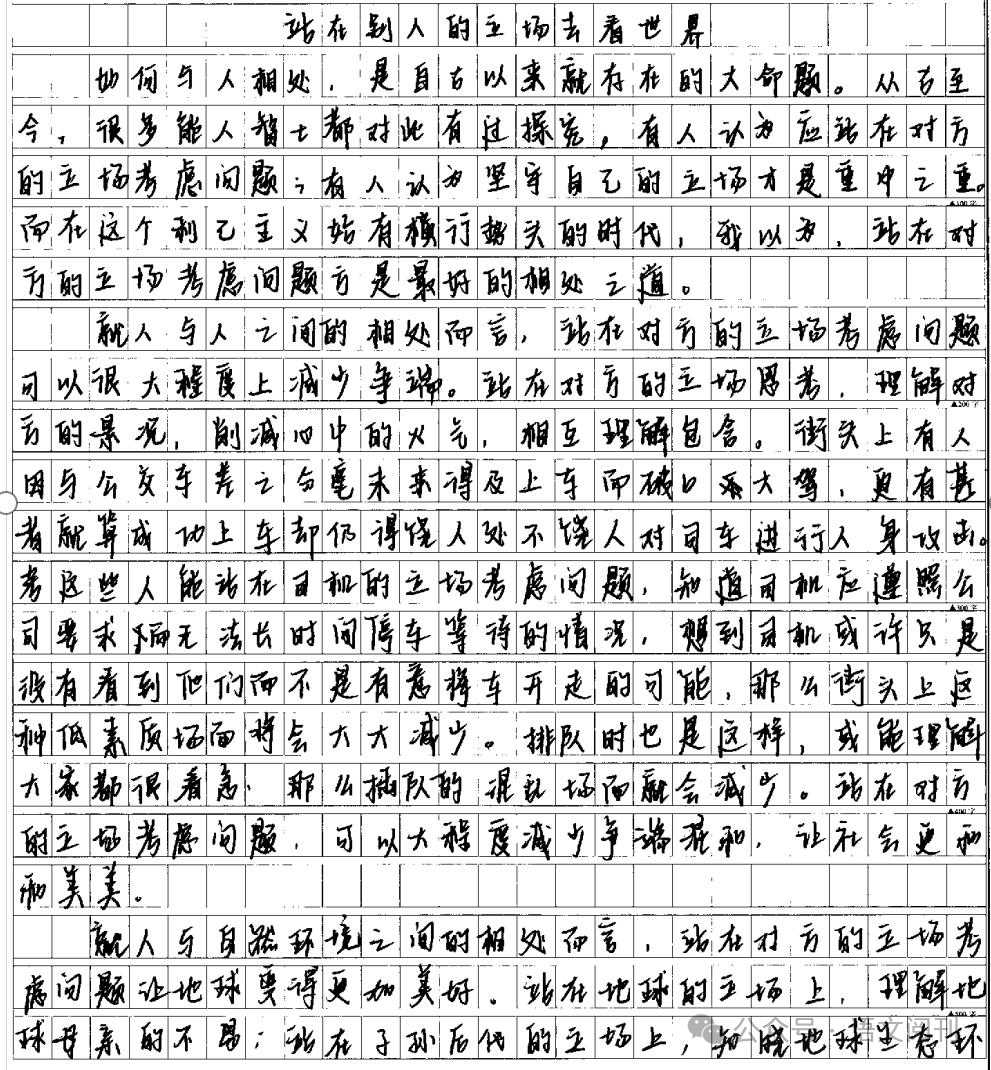 站在别人的立场去看世界
如何与人相处，是自古以来就存在的大命题。从古至
▲100字
今，很多能人智士都对此有过探究，有人认为应站在对方
的立场考虑问题；有人认为坚守自己的立场才是重中之重。
而在这个利己主义始有横行势头的时代，我以为，站在对
方的立场考虑问题方是最好的相处之道。
就人与人之间的相处而言，站在对方的立场考虑问题
可以很大程度上减少争端。站在对方的立场思考，理解对
▲200字
方的景况，削减心中的火气，相互理解包含。街头上有人
因与公交车差之分毫未来得及上车而破口大骂，更有甚
者就算成功上车却仍得饶人处不饶人对司车进行人身攻击。
考这些人能站在司机的立场考虑问题，知道司机应遵照公
▲300字
司要求而无法长时间停车等待的情况，想到司机或许只是
没有看到他们而不是有意将车开走的可能，那么街头上这
种低素质场面将会大大减少。排队时也是这样，或能理解
大家都很着急，那么插队的混乱场面就会减少。站在对方
▲400字
的立场考虑问题，可以大程度减少争端混和，让社会更和
和美美。
就人与自然环境之间的相处而言，站在对方的立场考
虑问题让地球变得更加美好。站在地球的立场上，理解地
▲500字
球母亲的不易；站在子孙后代的立场上，知晓地球生态环
公众号·语文阅刊